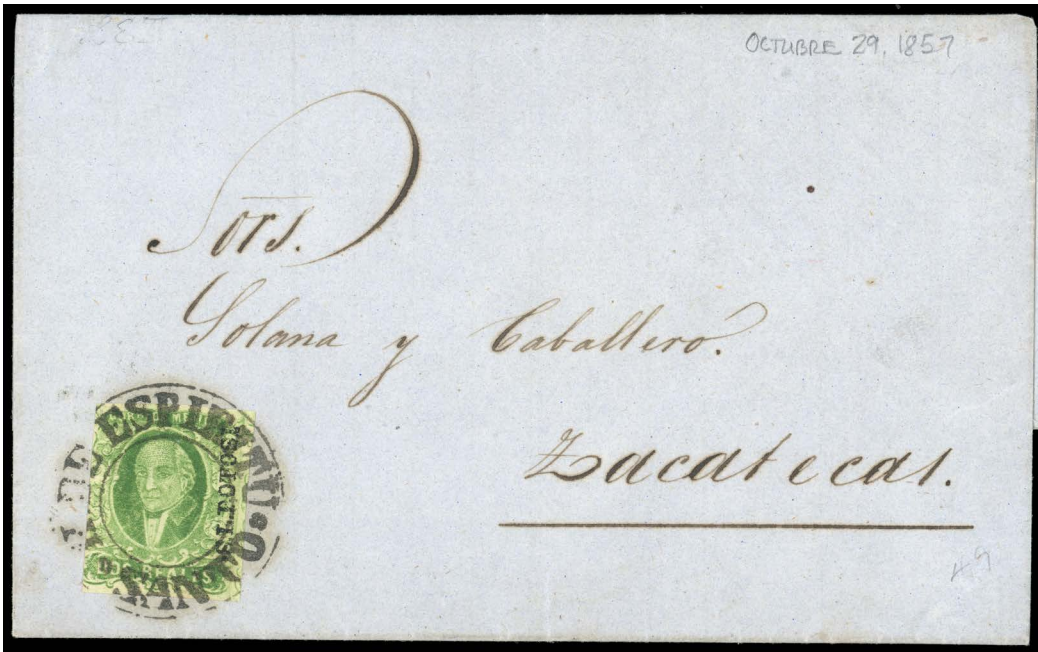 OCTUBRE 29, 1857
Sors.
Solana y Caballero.
Zacatecas.
DE ESPIRITU So
S. L. POTOSI
DOS REALES
49